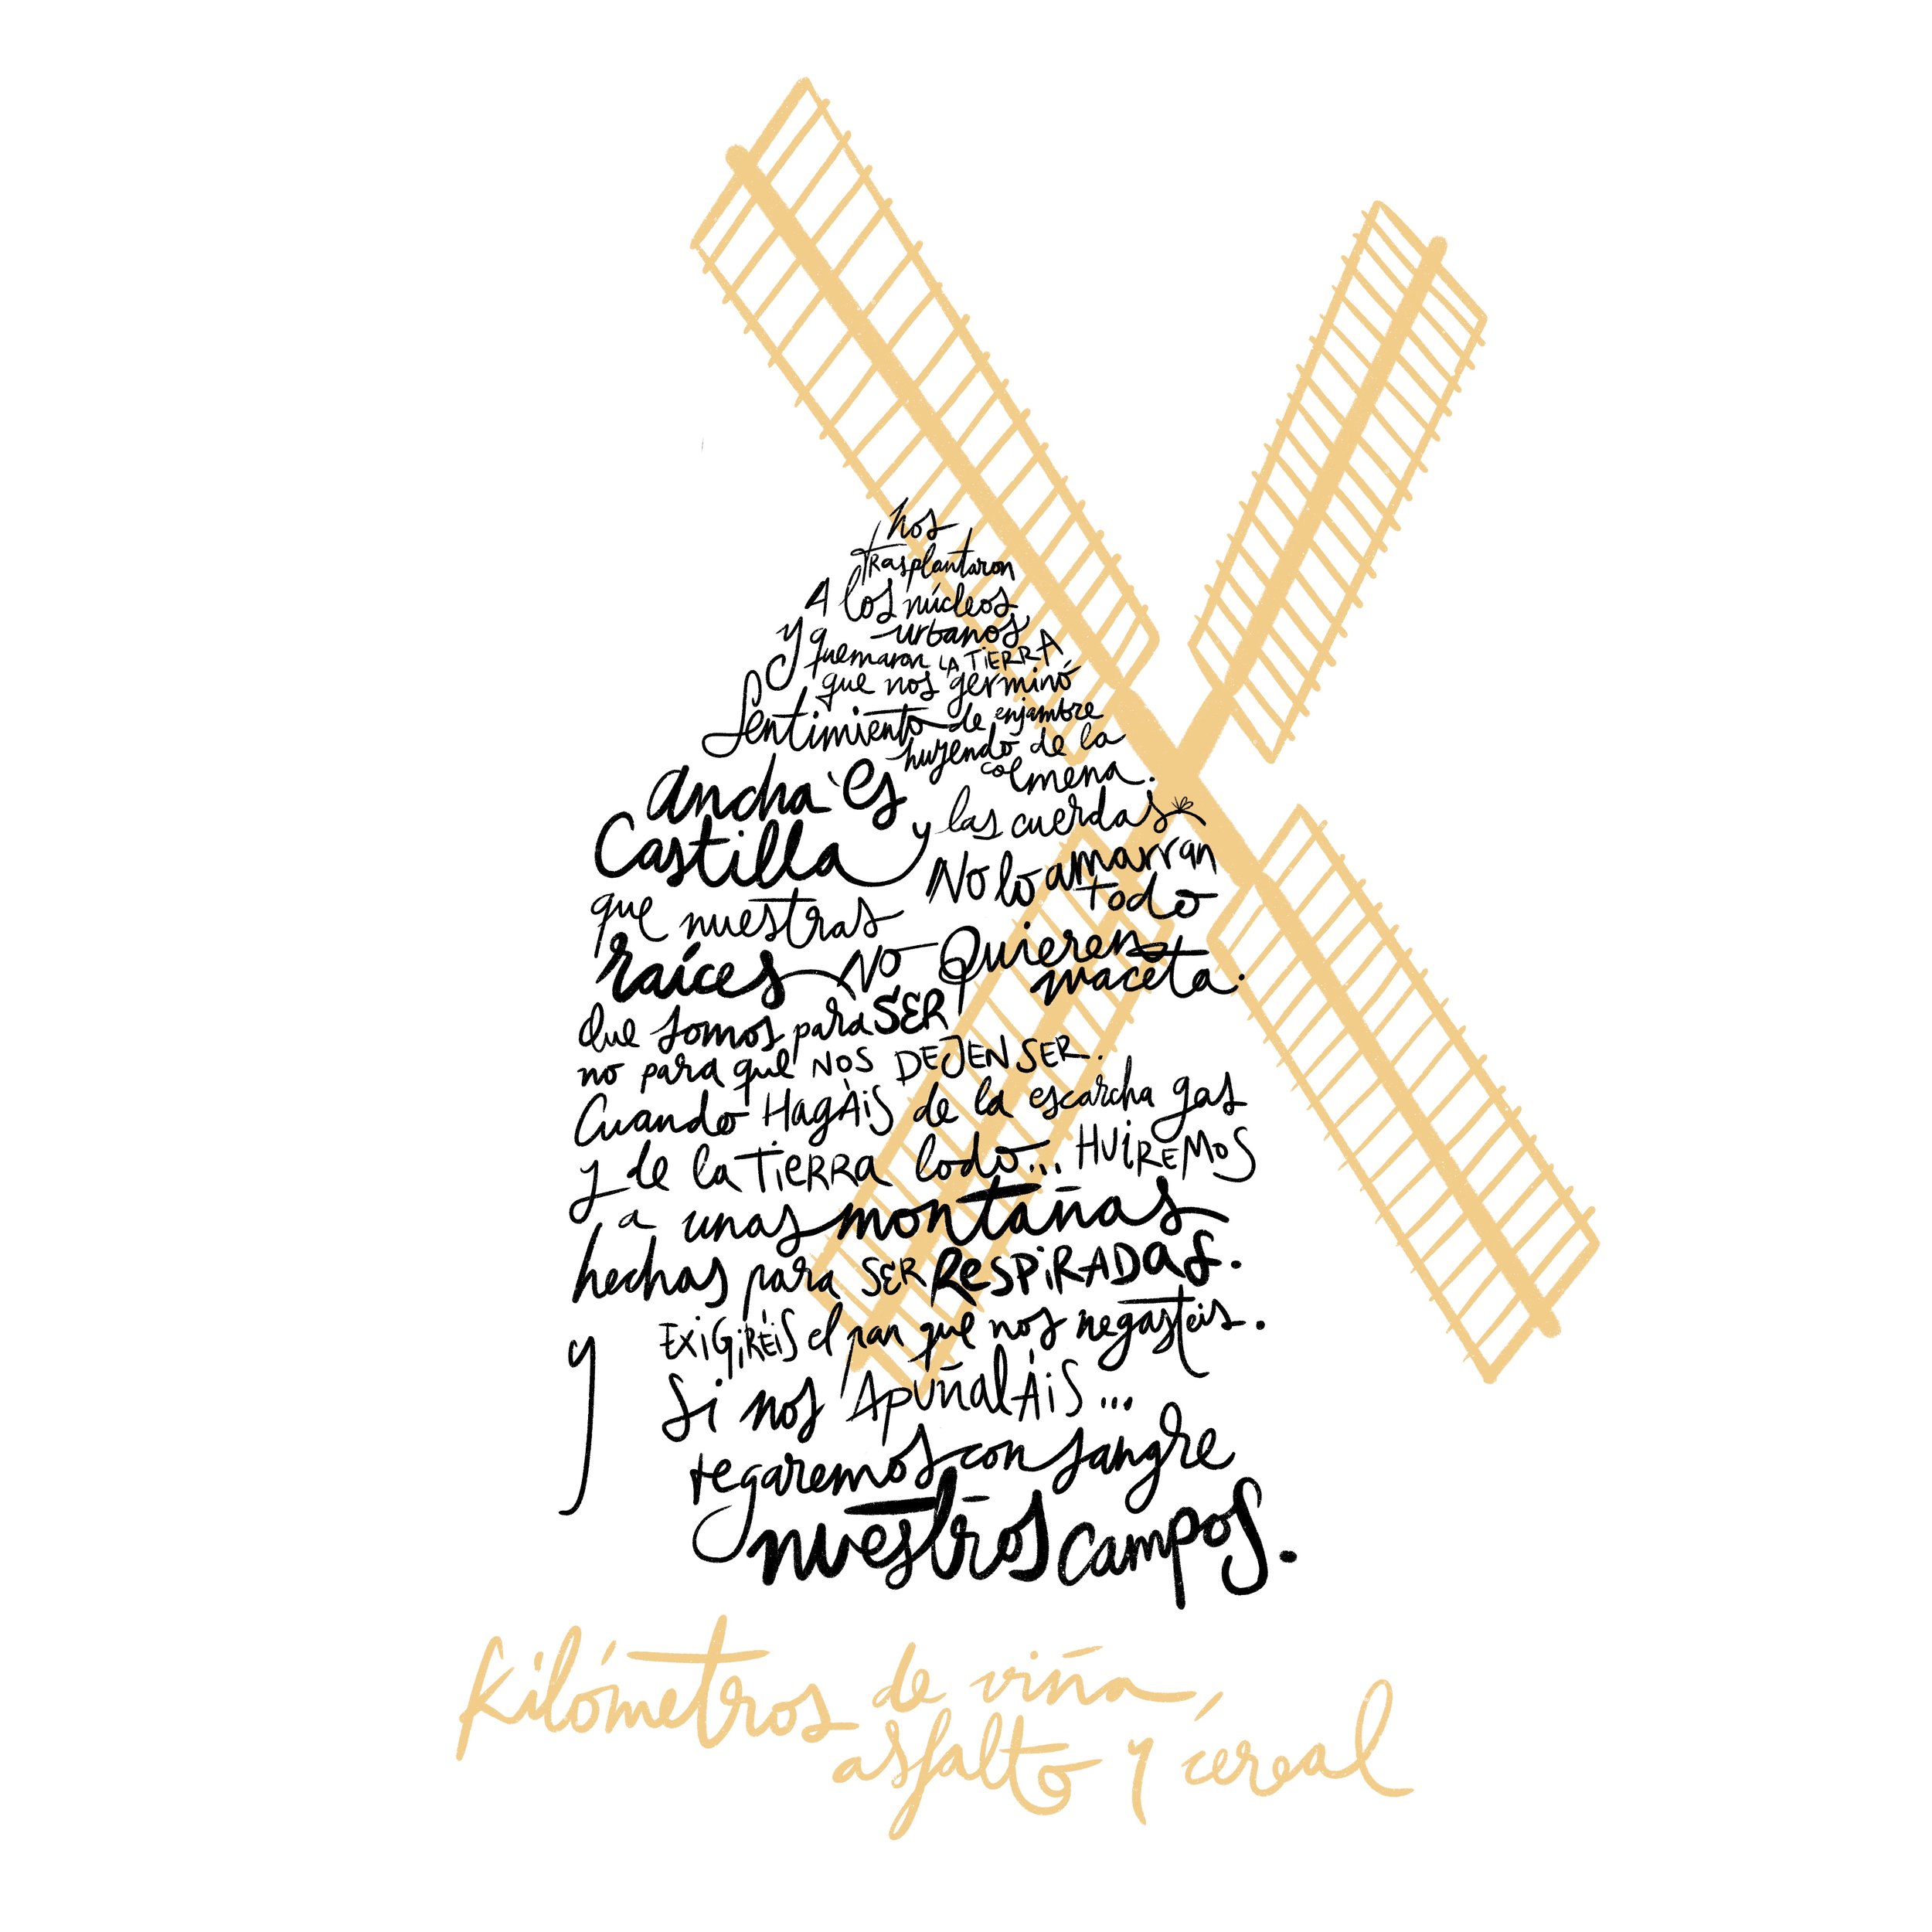 Nos
trasplantaron
A los núcleos
urbanos
y quemaron LA TIERRA
que nos germinó
Sentimiento de enjambre
huyendo de la
colmena.
Ancha es
Castilla
y las cuerdas
No lo amarran
todo
que nuestras
raíces NO Quieren
maceta.
Que somos para SER
no para que NOS DEJEN SER.
Cuando HAGÁIS de la escarcha gas
y de la TIERRA lodo... HUIREMOS
a unas montañas
hechas para SER RESPIRADAS.
y EXIGIRÉIS el pan que nos negasteis.
Si nos APUÑALÁIS...
regaremos con sangre
nuestros campos.
kilómetros de viña,
asfalto y cereal